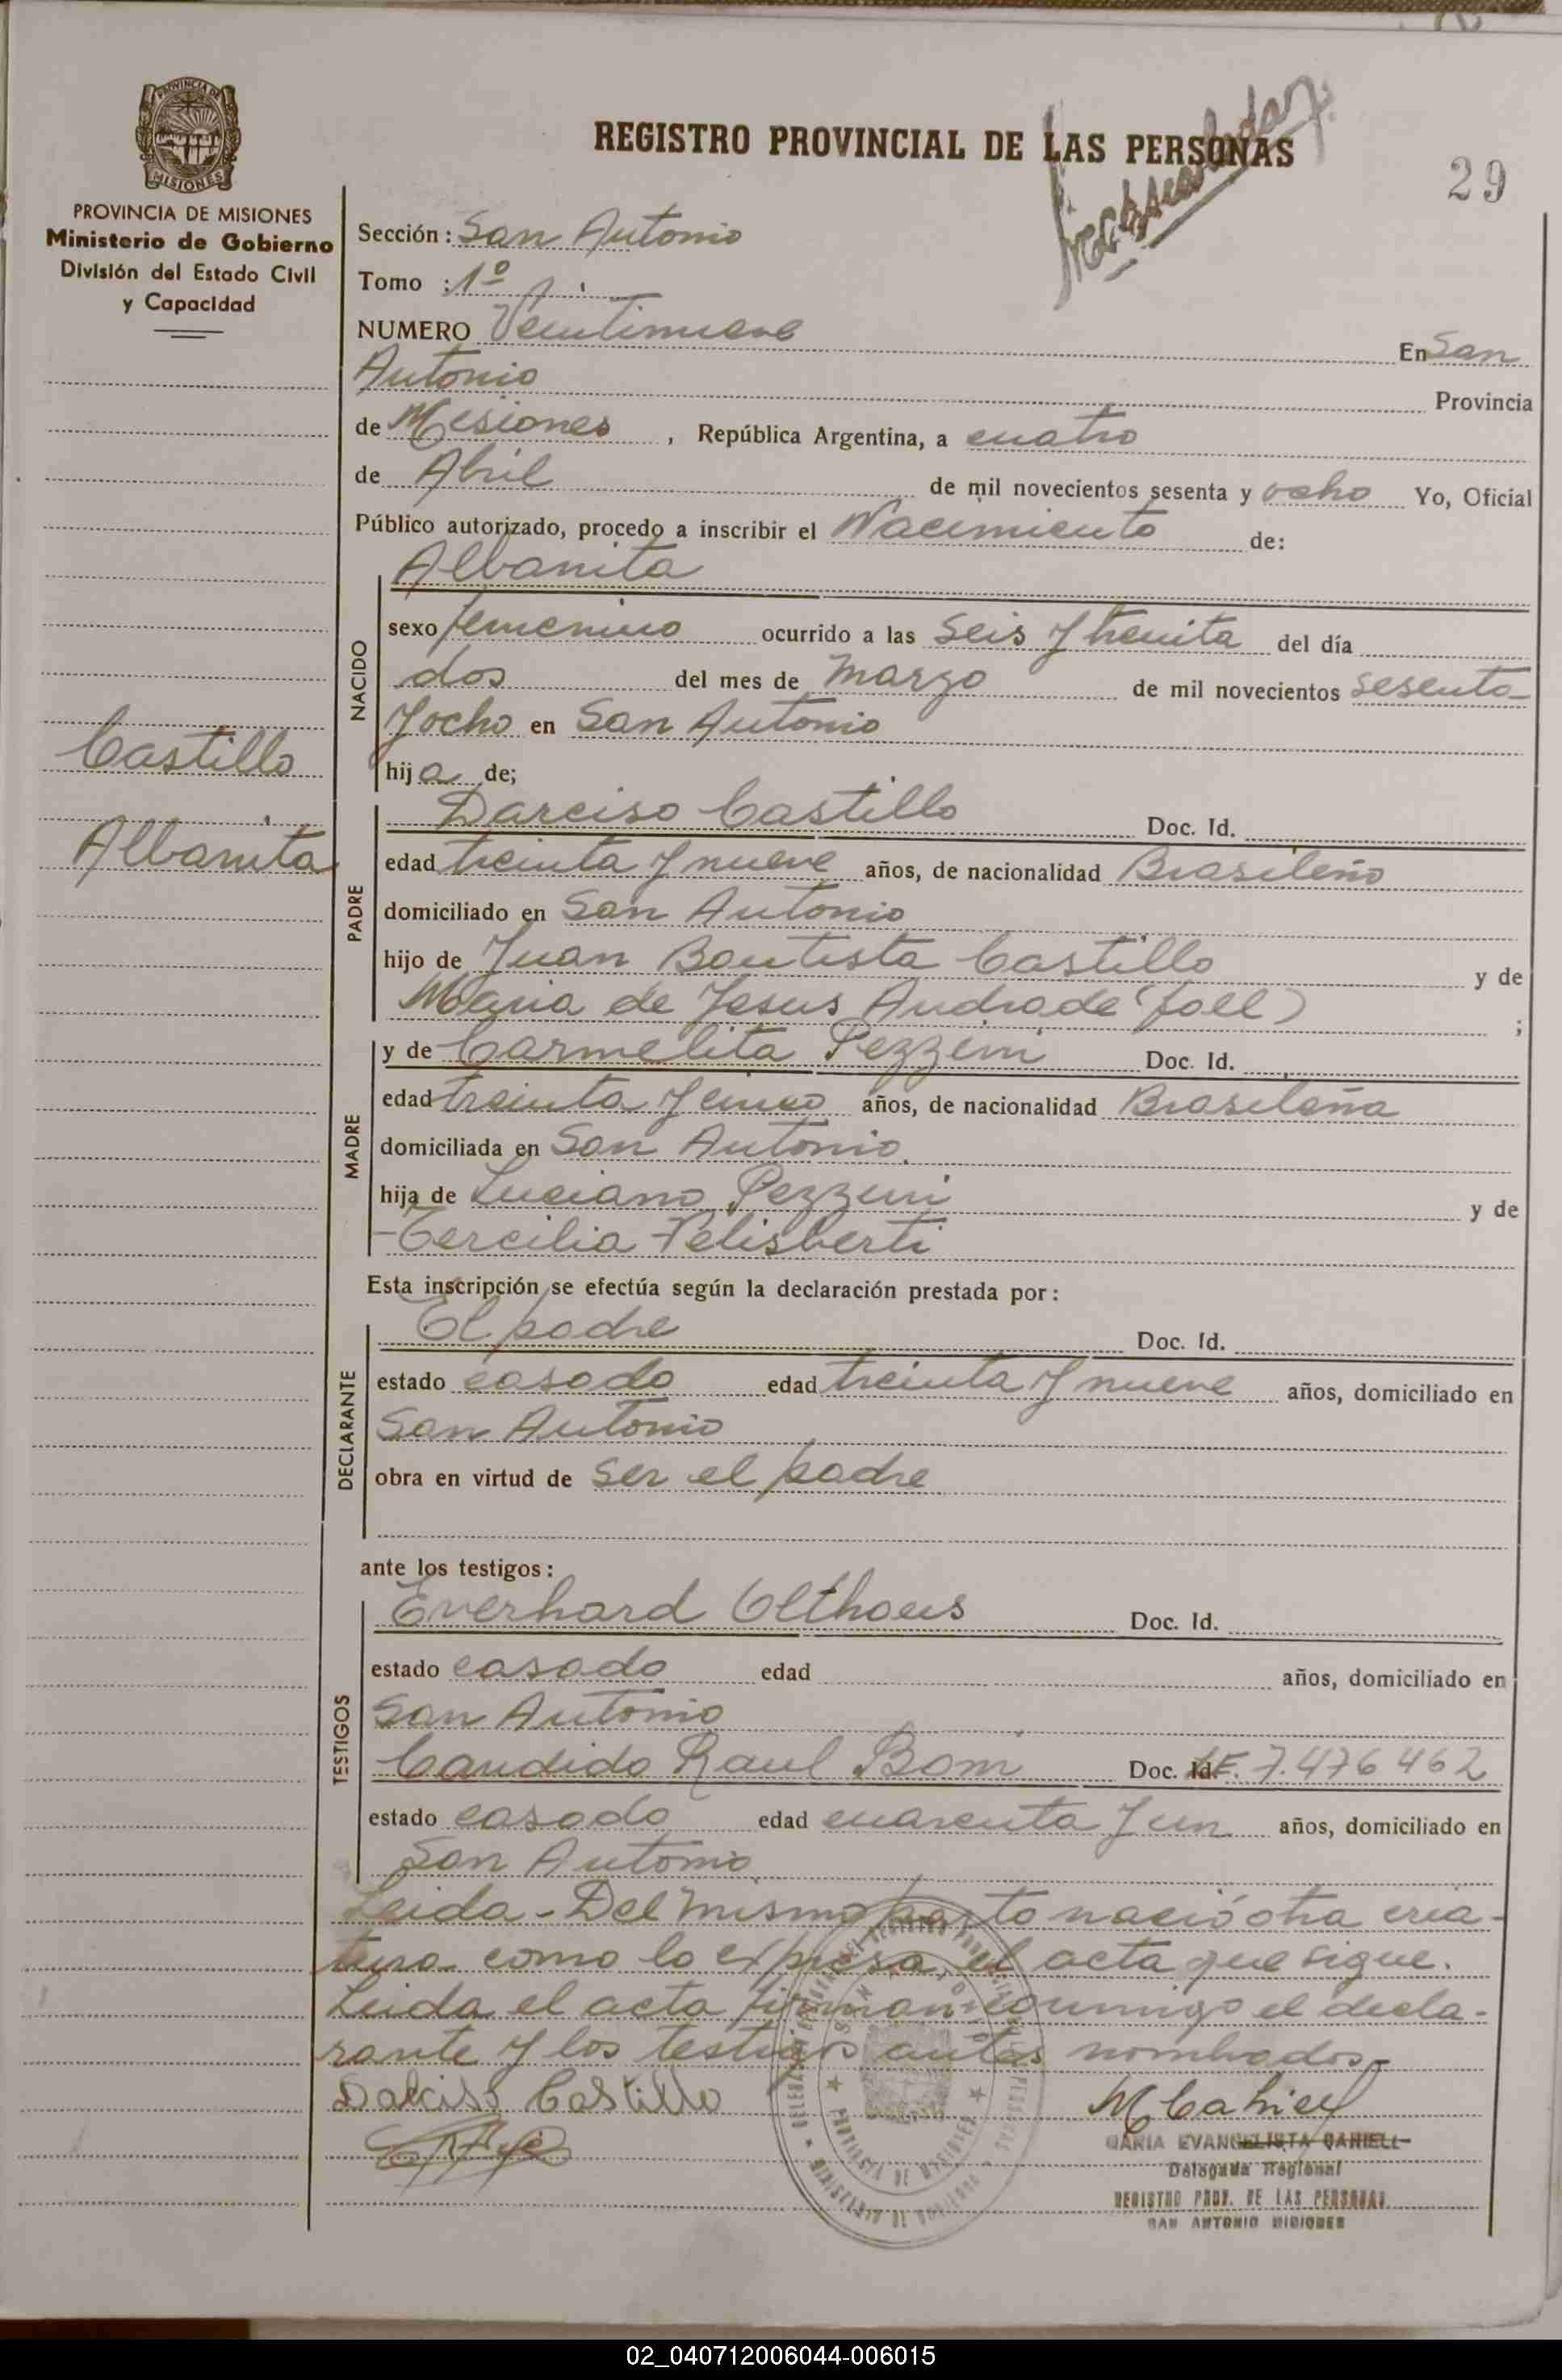 REGISTRO PROVINCIAL DE LAS PERSONAS
29
PROVINCIA DE MISIONES
Ministerio de Gobierno
División del Estado Civil
y Capacidad
Castillo
Albanita
Sección: San Antonio
Tomo : 1º
NUMERO Veintinueve En San
Antonio Provincia
de Misiones, República Argentina, a cuatro
de Abril de mil novecientos sesenta y ocho Yo, Oficial
Público autorizado, procedo a inscribir el Nacimiento de:
NACIDO
Albanita
sexo femenino ocurrido a las seis y treinta del día
dos del mes de marzo de mil novecientos sesenta
y ocho en San Antonio
hija de;
PADRE
Darciso Castillo Doc. Id.
edad treinta y nueve años, de nacionalidad Brasileño
domiciliado en San Antonio
hijo de Juan Bautista Castillo y de
Maria de Jesus Andrade (fall) ;
MADRE
y de Carmelita Pezzini Doc. Id.
edad treinta y cinco años, de nacionalidad Brasileña
domiciliada en San Antonio.
hija de Luciano Pezzini y de
Tercilia Felisberti
Esta inscripción se efectúa según la declaración prestada por:
DECLARANTE
El padre Doc. Id.
estado casado edad treinta y nueve años, domiciliado en
San Antonio
obra en virtud de ser el padre
ante los testigos:
TESTIGOS
Everhard Olthous Doc. Id.
estado casado edad años, domiciliado en
San Antonio
Candido Raul Bom Doc. Id. 7.476462
estado casado edad cuarenta y un años, domiciliado en
San Antonio
Leida - Del mismo parto nació otra cria-
tura como lo expresa el acta que sigue.
Leida el acta firman conmigo el decla-
rante y los testigos antes nombrados.-
Dalciso Castillo
Delegada Regional
REGISTRO PROV. DE LAS PERSONAS
SAN ANTONIO MISIONES
02_040712006044-006015